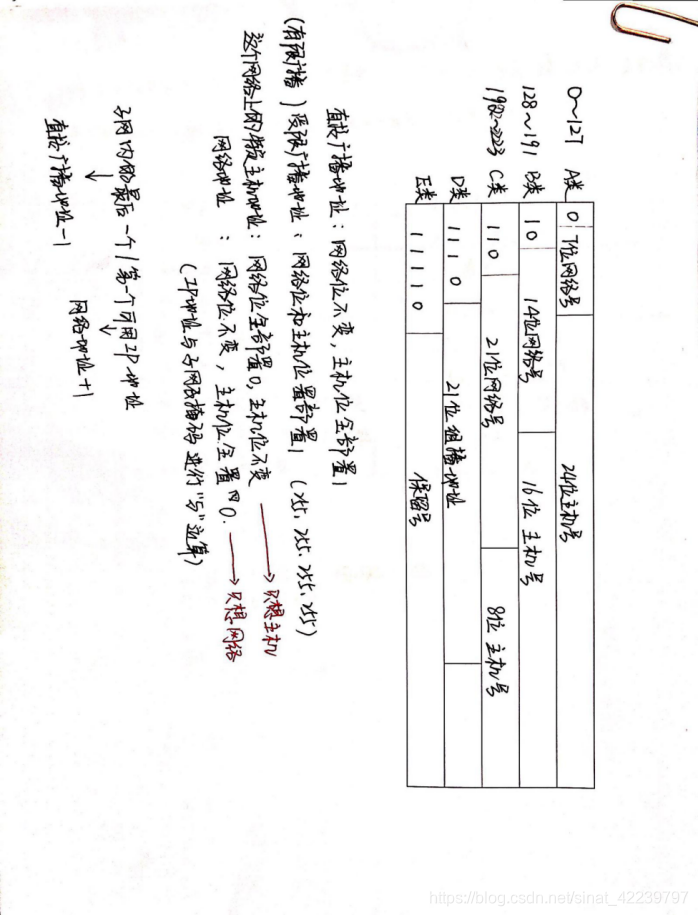 0~127 A类 0 7位网络号 24位主机号
128~191 B类 10 14位网络号 16位 主机号
192~223 C类 110 21位网络号 8位 主机号
D类 1110 21位组播地址
E类 11110 保留号
直接广播地址：网络位不变，主机位全部置1
(有限广播)受限广播地址：网络位和主机位置部置1 (255.255.255.255)
这个网络上的特定主机地址：网络位全部置0，主机位不变 → 只想主机
网络地址：网络位不变，主机位全置为0. → 只想网络
(IP地址与子网掩码进行"与"运算)
子网内的最后一个/第一个可用IP地址
↓ ↓
直接广播地址-1 网络地址+1
https://blog.csdn.net/sinat_42239797